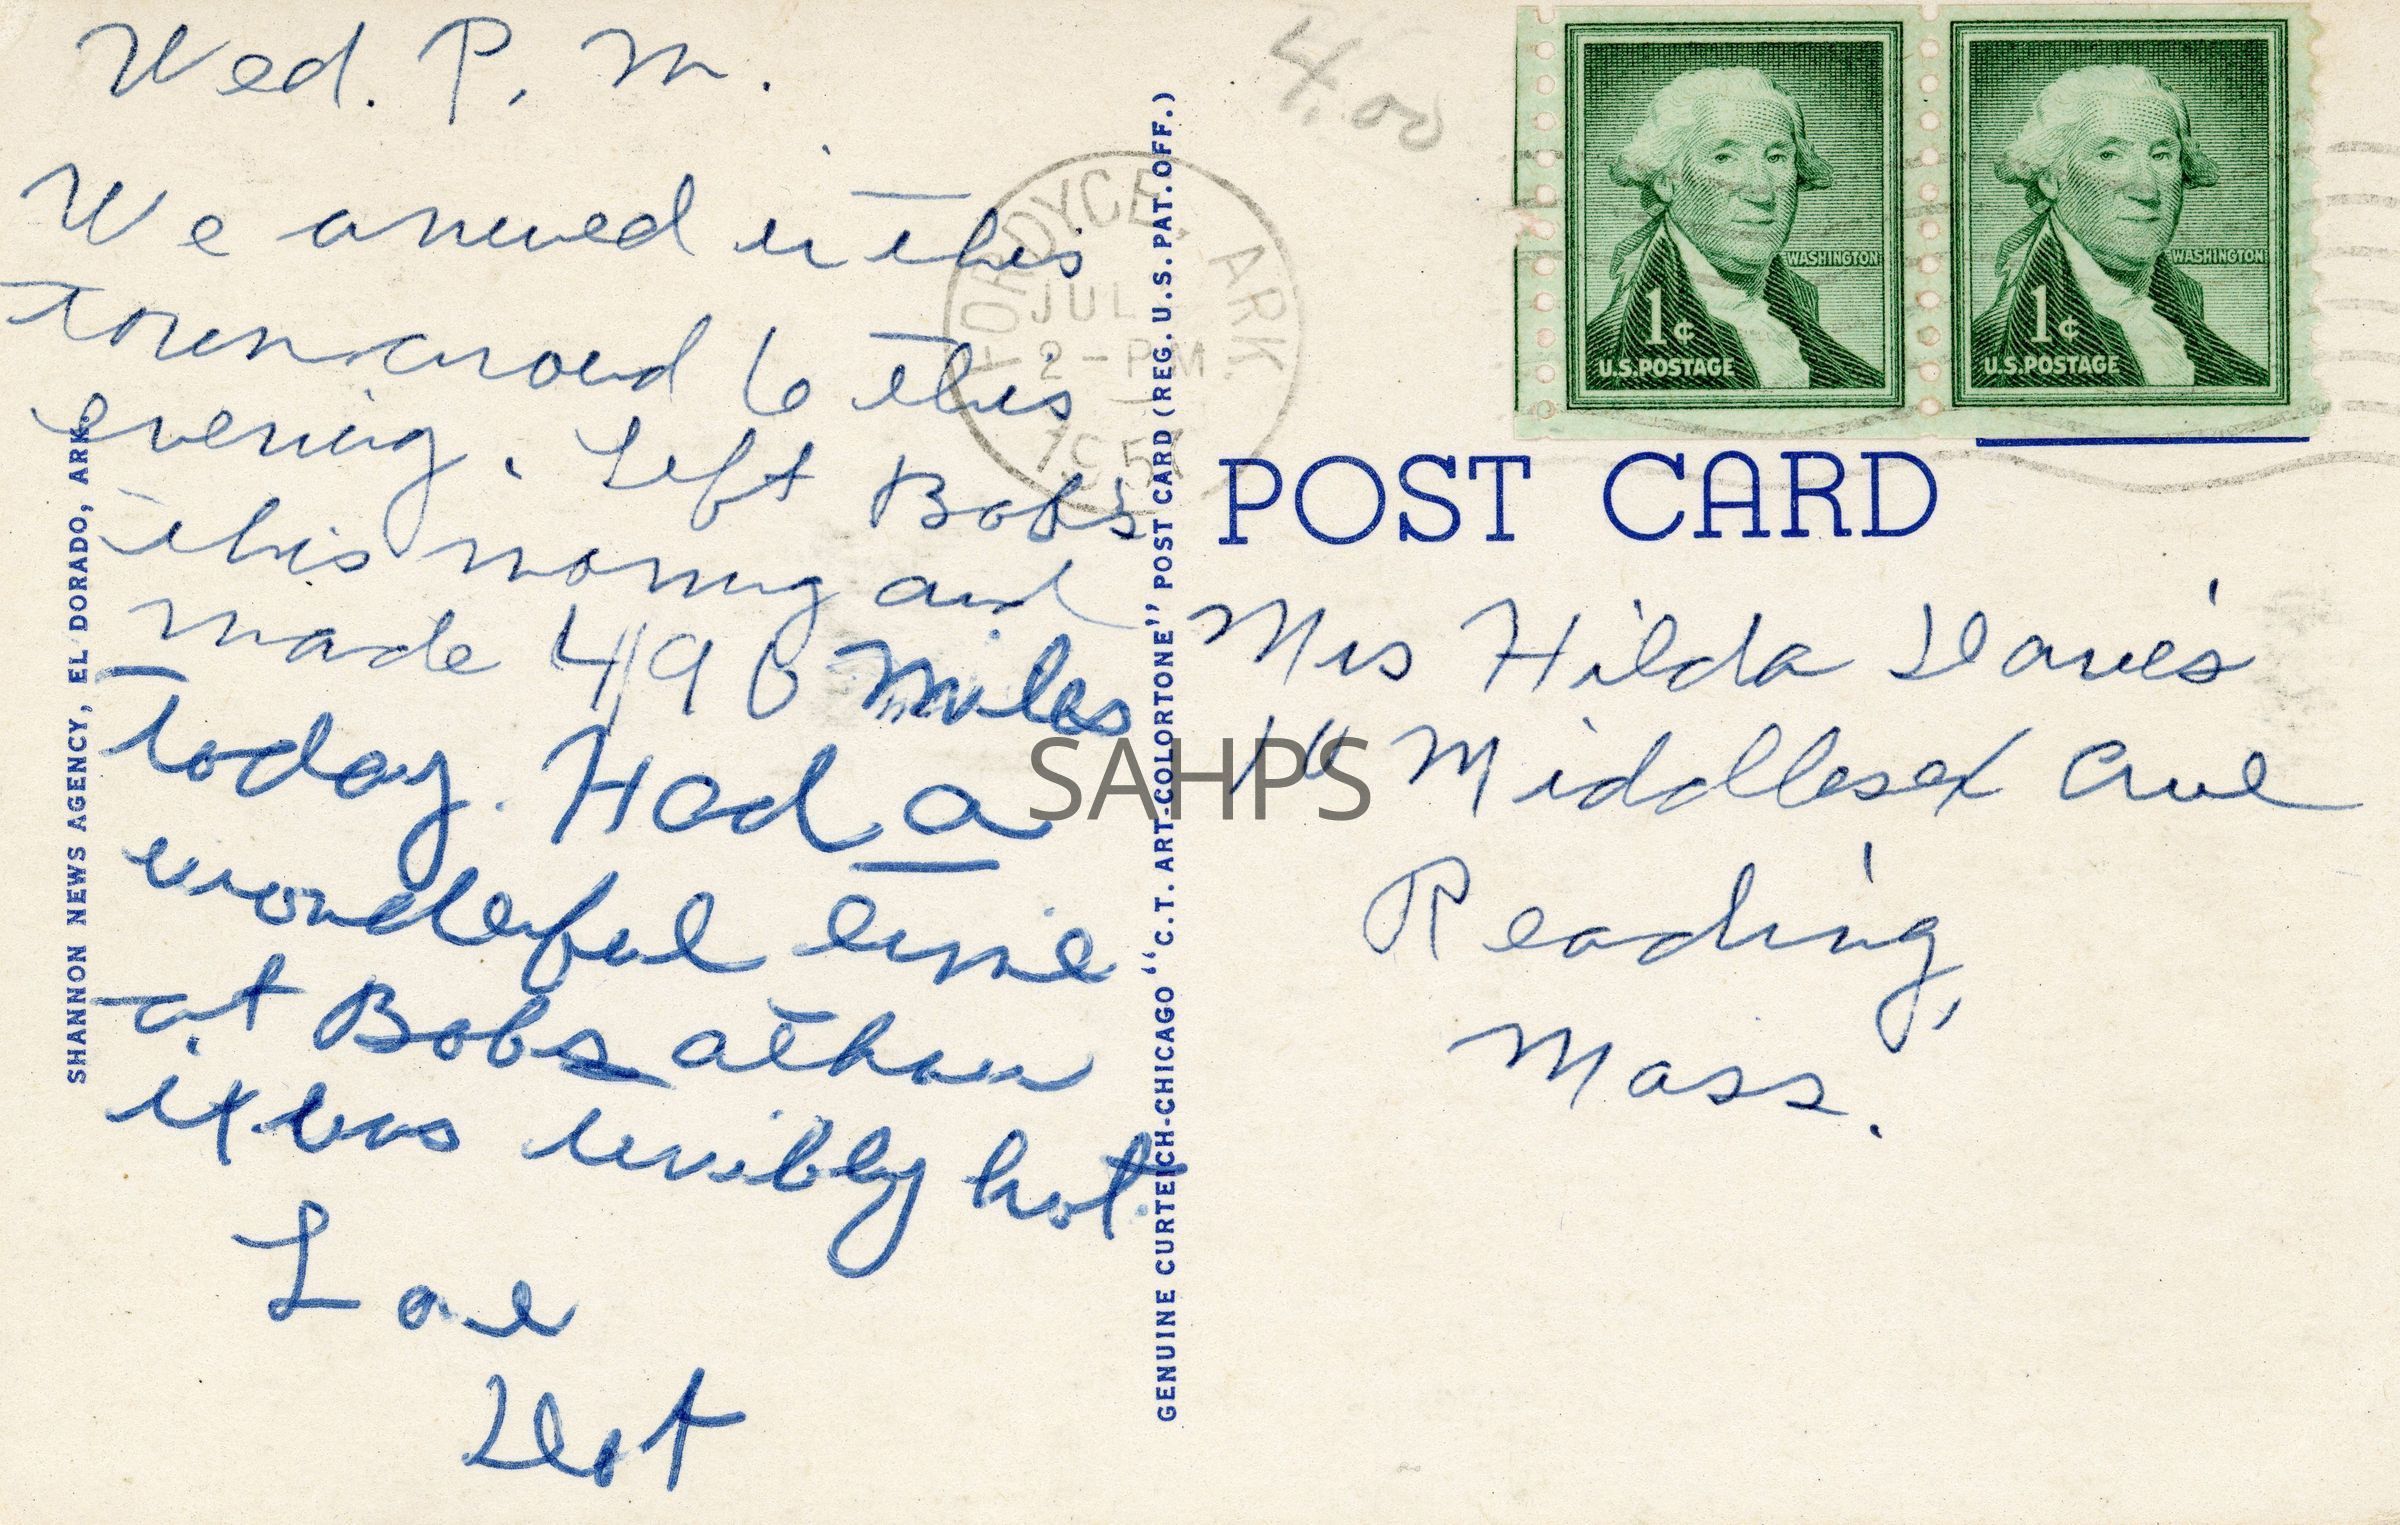 Wed. P. M.
We arrived in this
town around 6 this
evening. Left Bob's
this morning and
made 490 miles
today. Had a
wonderful time
at Bobs altho
it was terribly hot.
Love
Dot
SHANNON NEWS AGENCY, EL DORADO, ARK.
GENUINE CURTEICH-CHICAGO "C.T. ART-COLORTONE" POST CARD (REG. U.S. PAT. OFF.)
4.00
FORDYCE, ARK.
JUL
2-PM
1957
WASHINGTON
1¢
U.S.POSTAGE
WASHINGTON
1¢
U.S.POSTAGE
POST CARD
Mrs Hilda Davis
Middlesex Ave
Reading,
Mass.
SAHPS